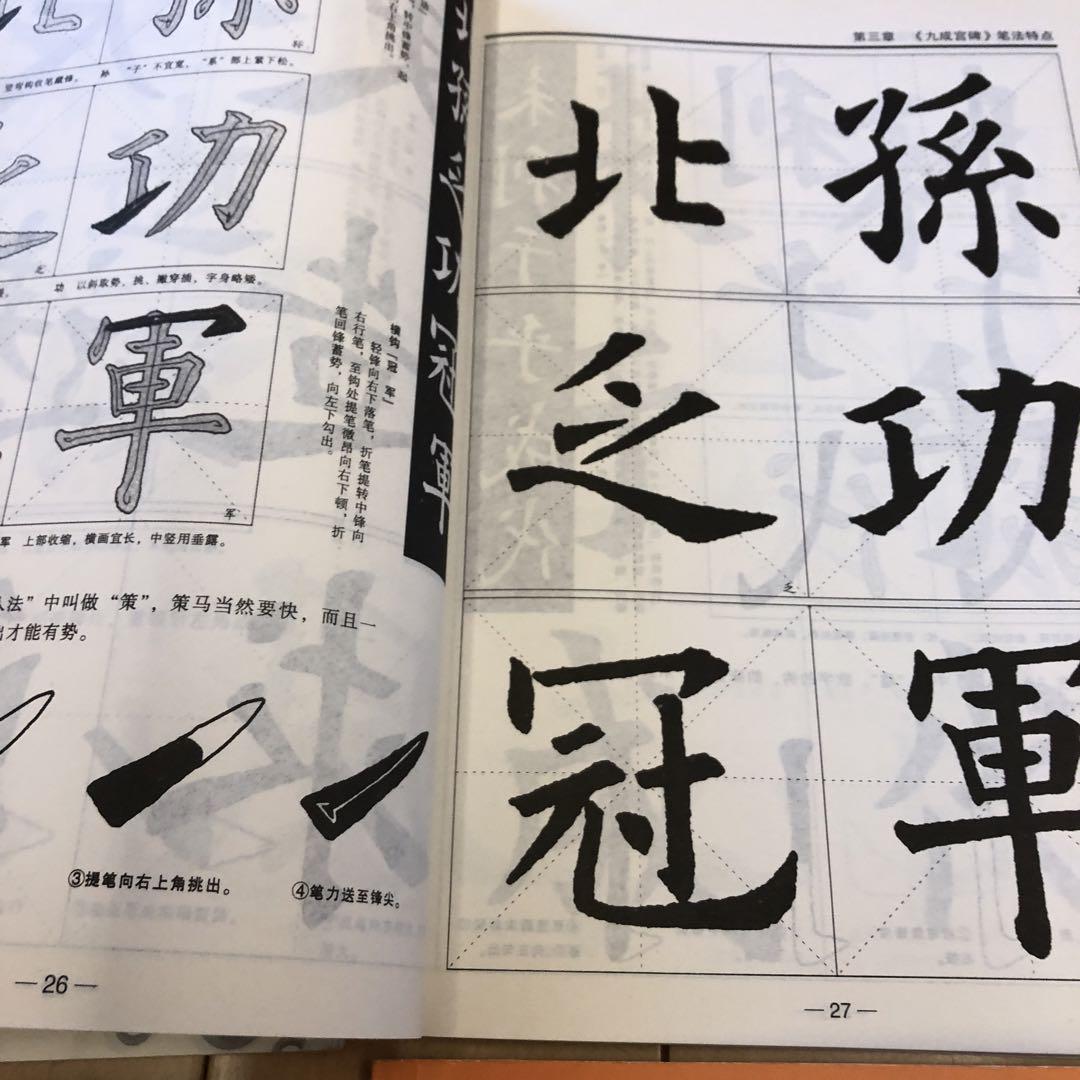 北孫乏功冠軍
轩
竖弯钩收笔藏锋。
孙 “子”不宜宽，“系”部上紧下松。
功
乏
功 以斜取势，挑、撇穿插，字身略矮。
軍
军
军 上部收缩，横画宜长，中竖用垂露。
横钩「冠 军」
轻锋向右下落笔，折笔提转中锋向
右行笔，至钩处提笔微昂向右下顿，折
笔回锋蓄势，向左下勾出。
法”中叫做“策”，策马当然要快，而且一
出才能有势。
③提笔向右上角挑出。
④笔力送至锋尖。
—26—
第三章 《九成宫碑》笔法特点
北 孫
乏 功
乏
冠 軍
—27—